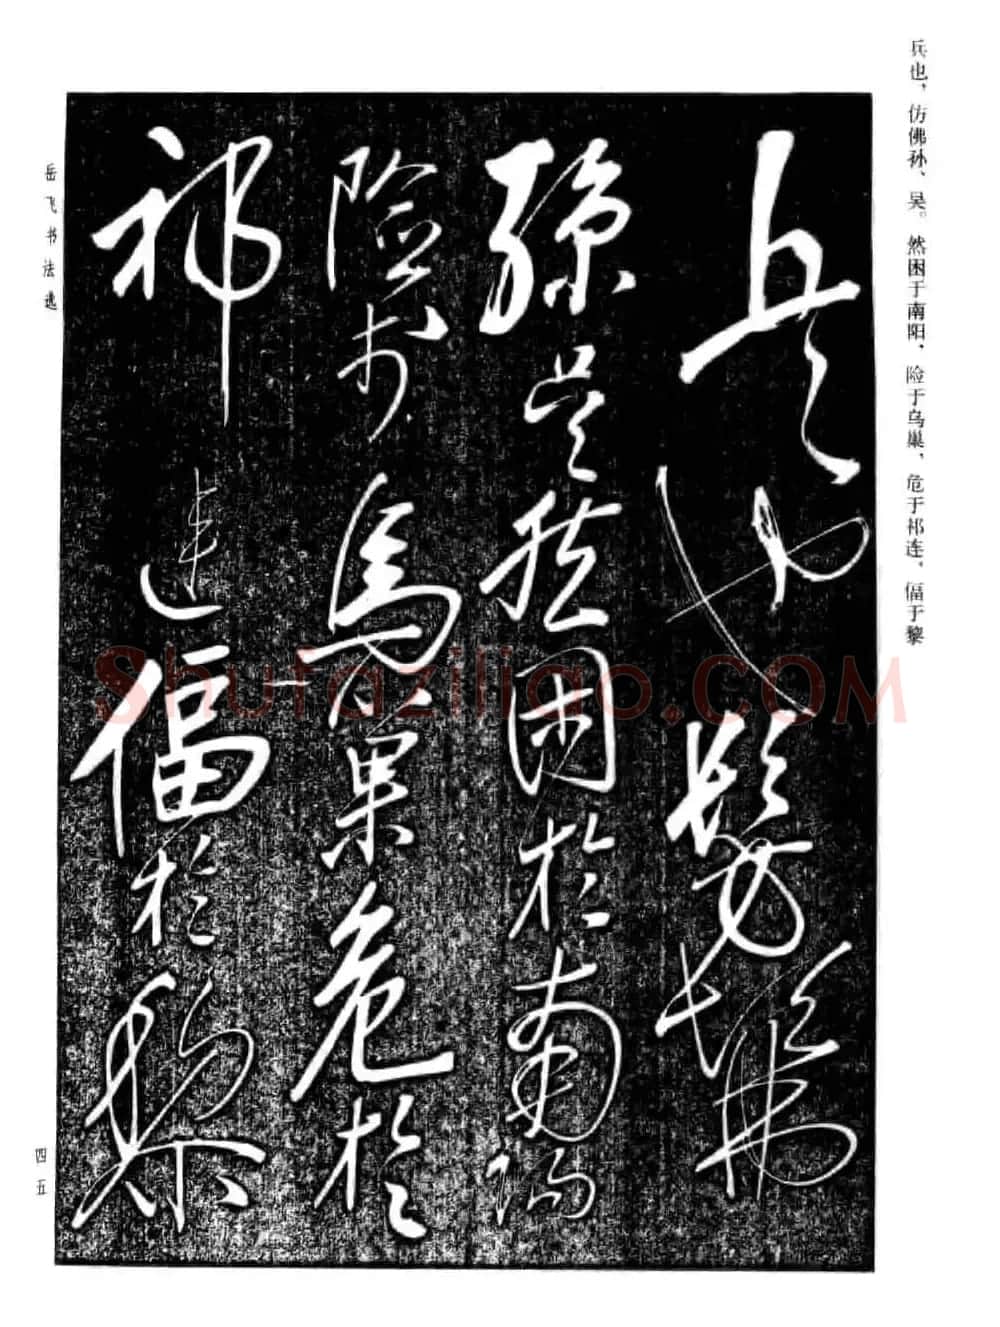 兵也，仿佛孙、吴。然困于南阳，险于乌巢，危于祁连，偪于黎
兵也髣髴
孫吳然困於南陽
險於烏巢危於
祁連偪於黎
岳飞书法选
四五
Shufaziliao.COM